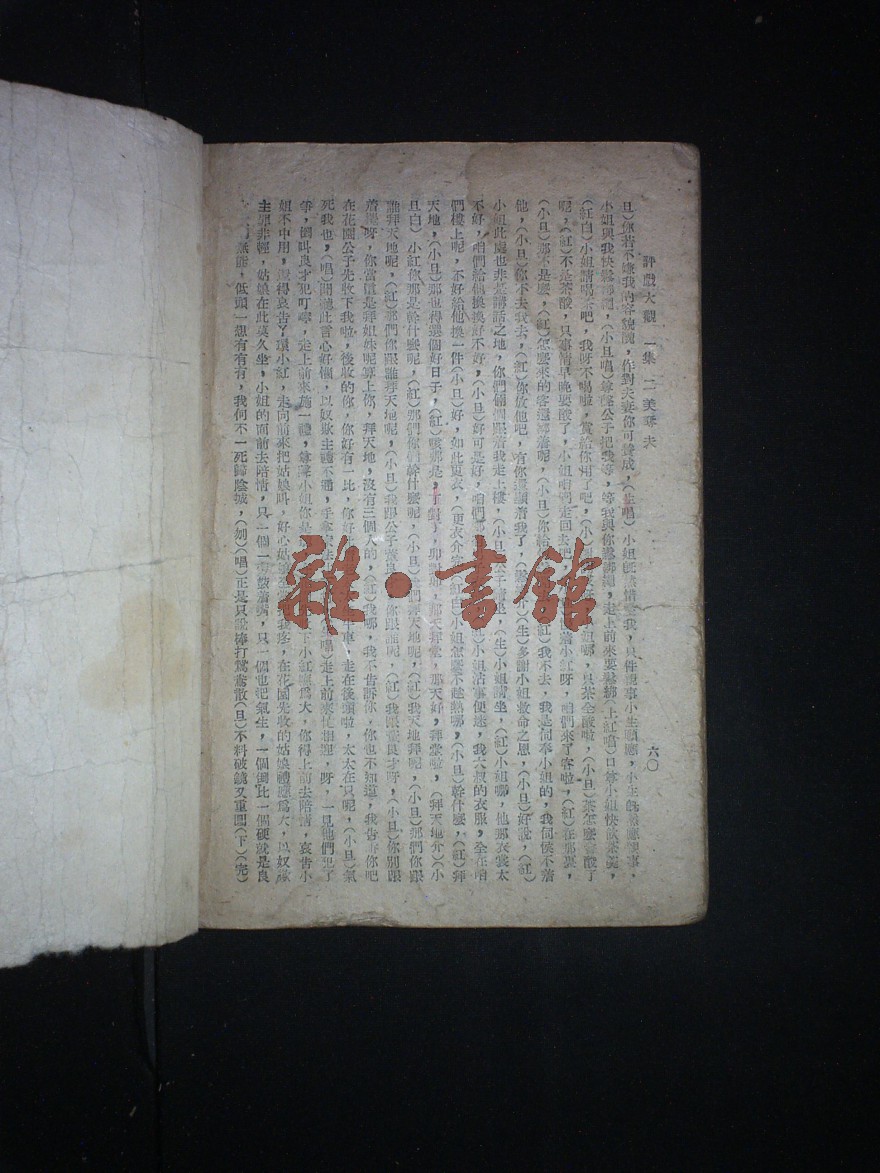 評戲大觀 一集 二美奪夫 六〇
旦)你若不嫌我的容貌醜,作對夫妻你可贊成,(生唱)小姐既然情愛我,只件事小生願應,小生
小姐與我快鬆綁繩,(小旦唱)尊聲公子把我等,等我與你鬆綁繩,走上前來要鬆綁(上紅唱)口尊小姐快飲茶羹,
(紅白)小姐請喝茶吧,我呀不喝啦,賞給你用了吧,(小姐哪,只茶全酸啦,(小旦)茶怎麼會酸了
呢,(紅)不是茶酸,只事情早晚要酸了,小姐咱們走回去吧,小紅呀,咱們來了客啦,(紅)在那裏,
(小旦)那不是麼,(紅)怎麼來的客還綁着呢,(小旦)你給紅)我不去,我是伺奉小姐的,我伺侯不着
他,(小旦)你不去我去,(紅)你放他吧,有你還顯着我了,(生)多謝小姐救命之恩,(小旦)好說,(紅)
小姐此處也非是講話之地,你們倆個跟着我走上樓,(小旦(生)小姐請坐,(紅)小姐哪,他那衣裳太
不好,咱們給他換換好不好,(小旦)好可是好,咱們那小姐沾事便迷,我大叔的衣服,全在咱
們樓上呢,不好給他換一件(小旦)好,如此更衣,(更衣介完(紅白)小姐怎麼不趁熱哪,(小旦)幹什麼,(紅)拜
天地,(小旦)那也得選個好日子,(紅)那天拜堂,那天好,拜堂啦,(拜天地介)(小
旦白)小紅你那是幹什麼呢,(紅)那們你們幹什麼呢,(小旦)們拜天地呢,(紅)我天地拜呢,(小旦)那們你跟
誰拜天地呢,(紅)那們你跟誰拜天地呢,(小旦)我跟公子你跟誰呢,(紅)我跟良才呀,(小旦)你別跟
着攪呀,你當還是拜姐妹呢算上你,拜天地,沒有三個人的,(紅)我哪,我不告訴你,你也不知道,我告訴你吧
在花園公子先收下我啦,後收的你,你好有一比,你好車,走在後頭啦,太太在只呢,(小旦)氣
死我也,(唱)聞聽此言心好惱,以奴欺主禮不通,手拿家法唱)走上前來忙相迎,呀,一見他們犯了
等,倒叫良才犯叮嚀,走上前來施一禮,尊聲小姐你是下小紅應爲大,你得上前去陪情,哀告小
姐不中用,還得哀告丫環小紅,走向前來把姑娘叫,好心姑娘我疼,在花園先收的姑娘禮應爲大,以奴欺
主罪非輕,姑娘在此莫久坐,小姐的面前去陪情,只一個一旁鼓着嘴,只一個也把氣生,一個倒比一個硬就是良
無能,低頭一想有有有,我何不一死歸陰城,(刎)(唱)正是只說棒打鴛鴦散(旦)不料破鏡又重圓(下)(完)
雜·書館